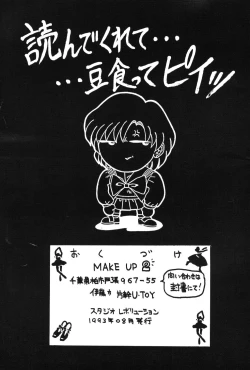 読んでくれて・・・
・・・豆食ってピイッ
おくづけ
MAKE UP
千葉県柏市戸張967-55
伊藤方 U-TOY
問い合わせは
封書にて!
スタジオレボリューション
1993年08月発行